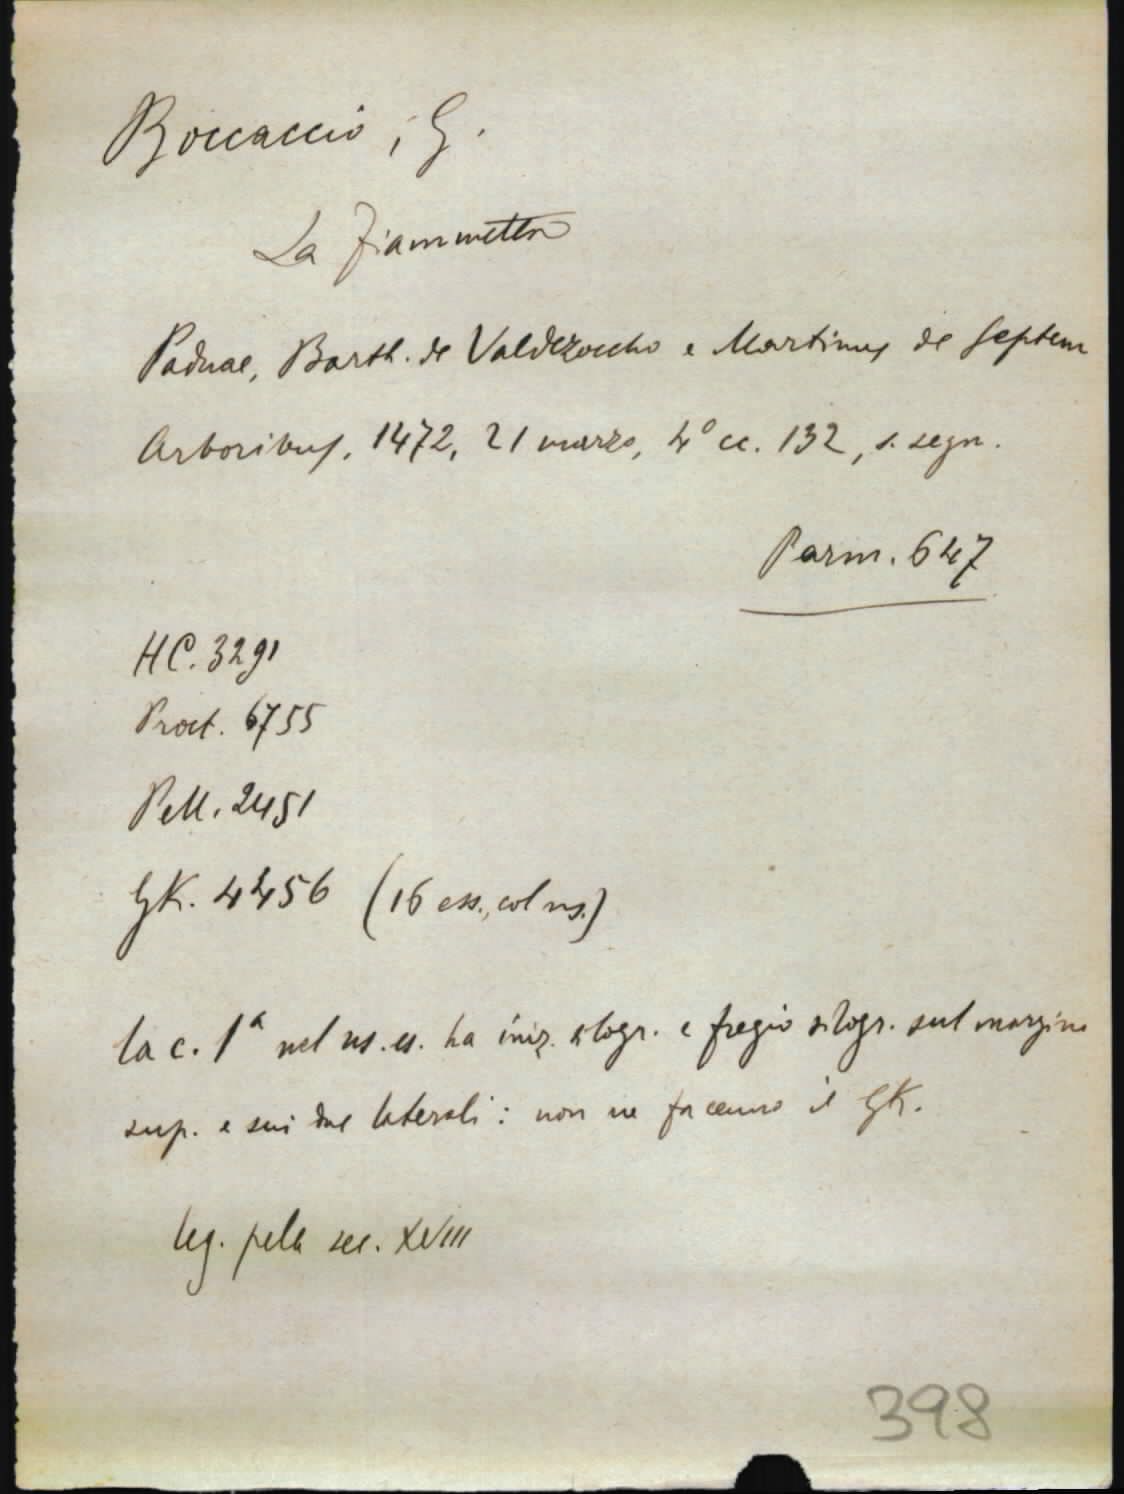 Boccaccio, G.
La Fiammetta
Paduae, Barth. de Valdezoccho e Martinus de Septem
Arboribus, 1472, 21 marzo, 4° cc. 132, s. segn.
Parm. 647
HC. 3291
Proct. 6755
Pell. 2451
GK. 4456 (16 ess., col ns.)
la c. 1ª nel ns. es. ha iniz. silogr. e fregio silogr. sul margine
sup. e sui due laterali: non ne fa cenno il GK.
leg. pelle sec. XVIII
398